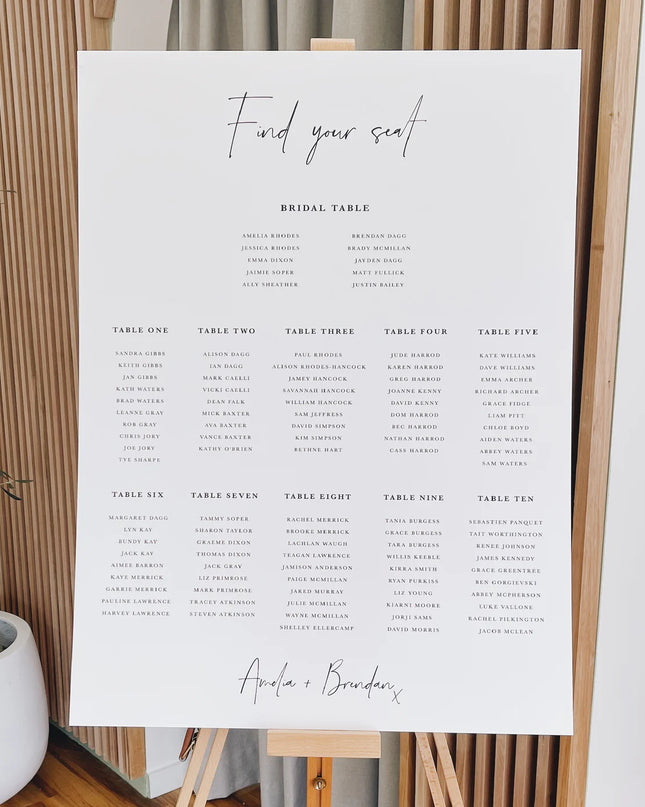 Find your seat
BRIDAL TABLE
AMELIA RHODES
JESSICA RHODES
EMMA DIXON
JAIMIE SOPER
ALLY SHEATHER
BRENDAN DAGG
BRADY MCMILLAN
JAYDEN DAGG
MATT FULLICK
JUSTIN BAILEY
TABLE ONE
SANDRA GIBBS
KEITH GIBBS
JAN GIBBS
KATH WATERS
BRAD WATERS
LEANNE GRAY
ROB GRAY
CHRIS JORY
JOE JORY
TYE SHARPE
TABLE TWO
ALISON DAGG
IAN DAGG
MARK CAELLI
VICKI CAELLI
DEAN FALK
MICK BAXTER
AVA BAXTER
VANCE BAXTER
KATHY O'BRIEN
TABLE THREE
PAUL RHODES
ALISON RHODES-HANCOCK
JAMEY HANCOCK
SAVANNAH HANCOCK
WILLIAM HANCOCK
SAM JEFFRESS
DAVID SIMPSON
KIM SIMPSON
BETHNE HART
TABLE FOUR
JUDE HARROD
KAREN HARROD
GREG HARROD
JOANNE KENNY
DAVID KENNY
DOM HARROD
BEC HARROD
NATHAN HARROD
CASS HARROD
TABLE FIVE
KATE WILLIAMS
DAVE WILLIAMS
EMMA ARCHER
RICHARD ARCHER
GRACE FIDGE
LIAM PITT
CHLOE BOYD
AIDEN WATERS
ABBEY WATERS
SAM WATERS
TABLE SIX
MARGARET DAGG
LYN KAY
BUNDY KAY
JACK KAY
AIMEE BARRON
KAYE MERRICK
GARRIE MERRICK
PAULINE LAWRENCE
HARVEY LAWRENCE
TABLE SEVEN
TAMMY SOPER
SHARON TAYLOR
GRAEME DIXON
THOMAS DIXON
JACK GRAY
LIZ PRIMROSE
MARK PRIMROSE
TRACEY ATKINSON
STEVEN ATKINSON
TABLE EIGHT
RACHEL MERRICK
BROOKE MERRICK
LACHLAN WAUGH
TEAGAN LAWRENCE
JAMISON ANDERSON
PAIGE MCMILLAN
JARED MURRAY
JULIE MCMILLAN
WAYNE MCMILLAN
SHELLEY ELLERCAMP
TABLE NINE
TANIA BURGESS
GRACE BURGESS
TARA BURGESS
WILLIS KEEBLE
KIRRA SMITH
RYAN PURKISS
LIZ YOUNG
KIARNI MOORE
JORJI SAMS
DAVID MORRIS
TABLE TEN
SEBASTIEN PANQUET
TAIT WORTHINGTON
RENEE JOHNSON
JAMES KENNEDY
GRACE GREENTREE
BEN GORGIEVSKI
ABBEY MCPHERSON
LUKE VALLONE
RACHEL PILKINGTON
JACOB MCLEAN
Amelia + Brendan
X